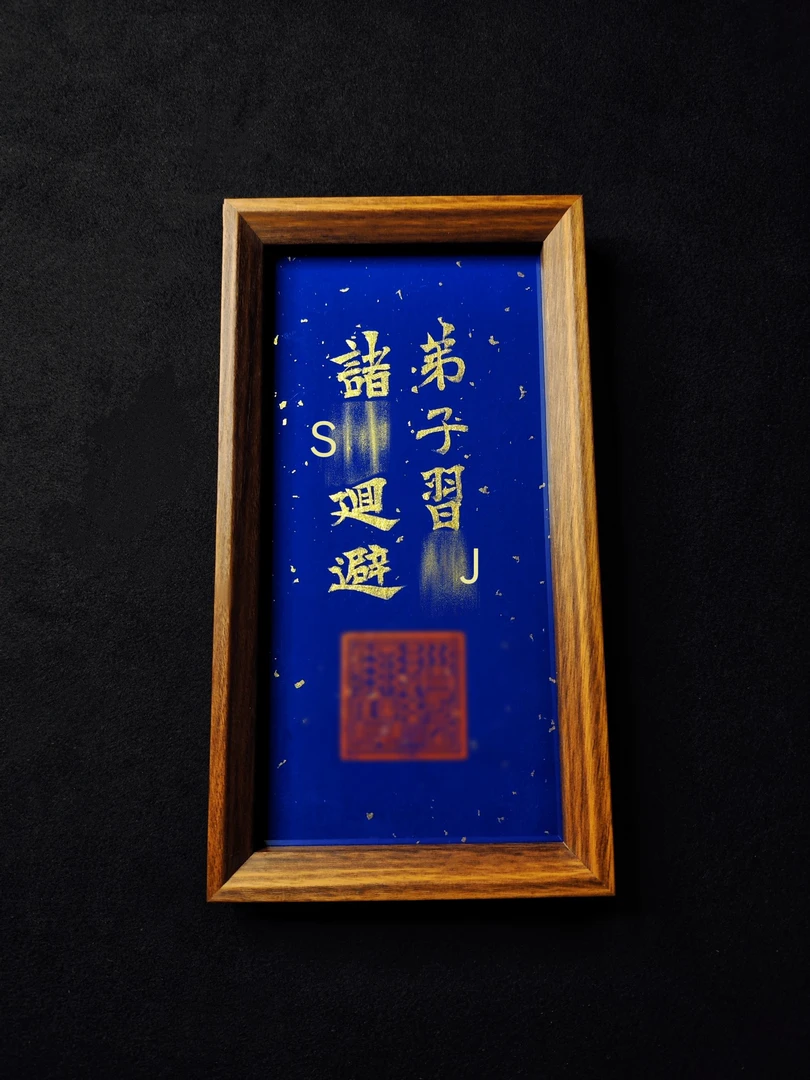 弟子習J
諸S廻避